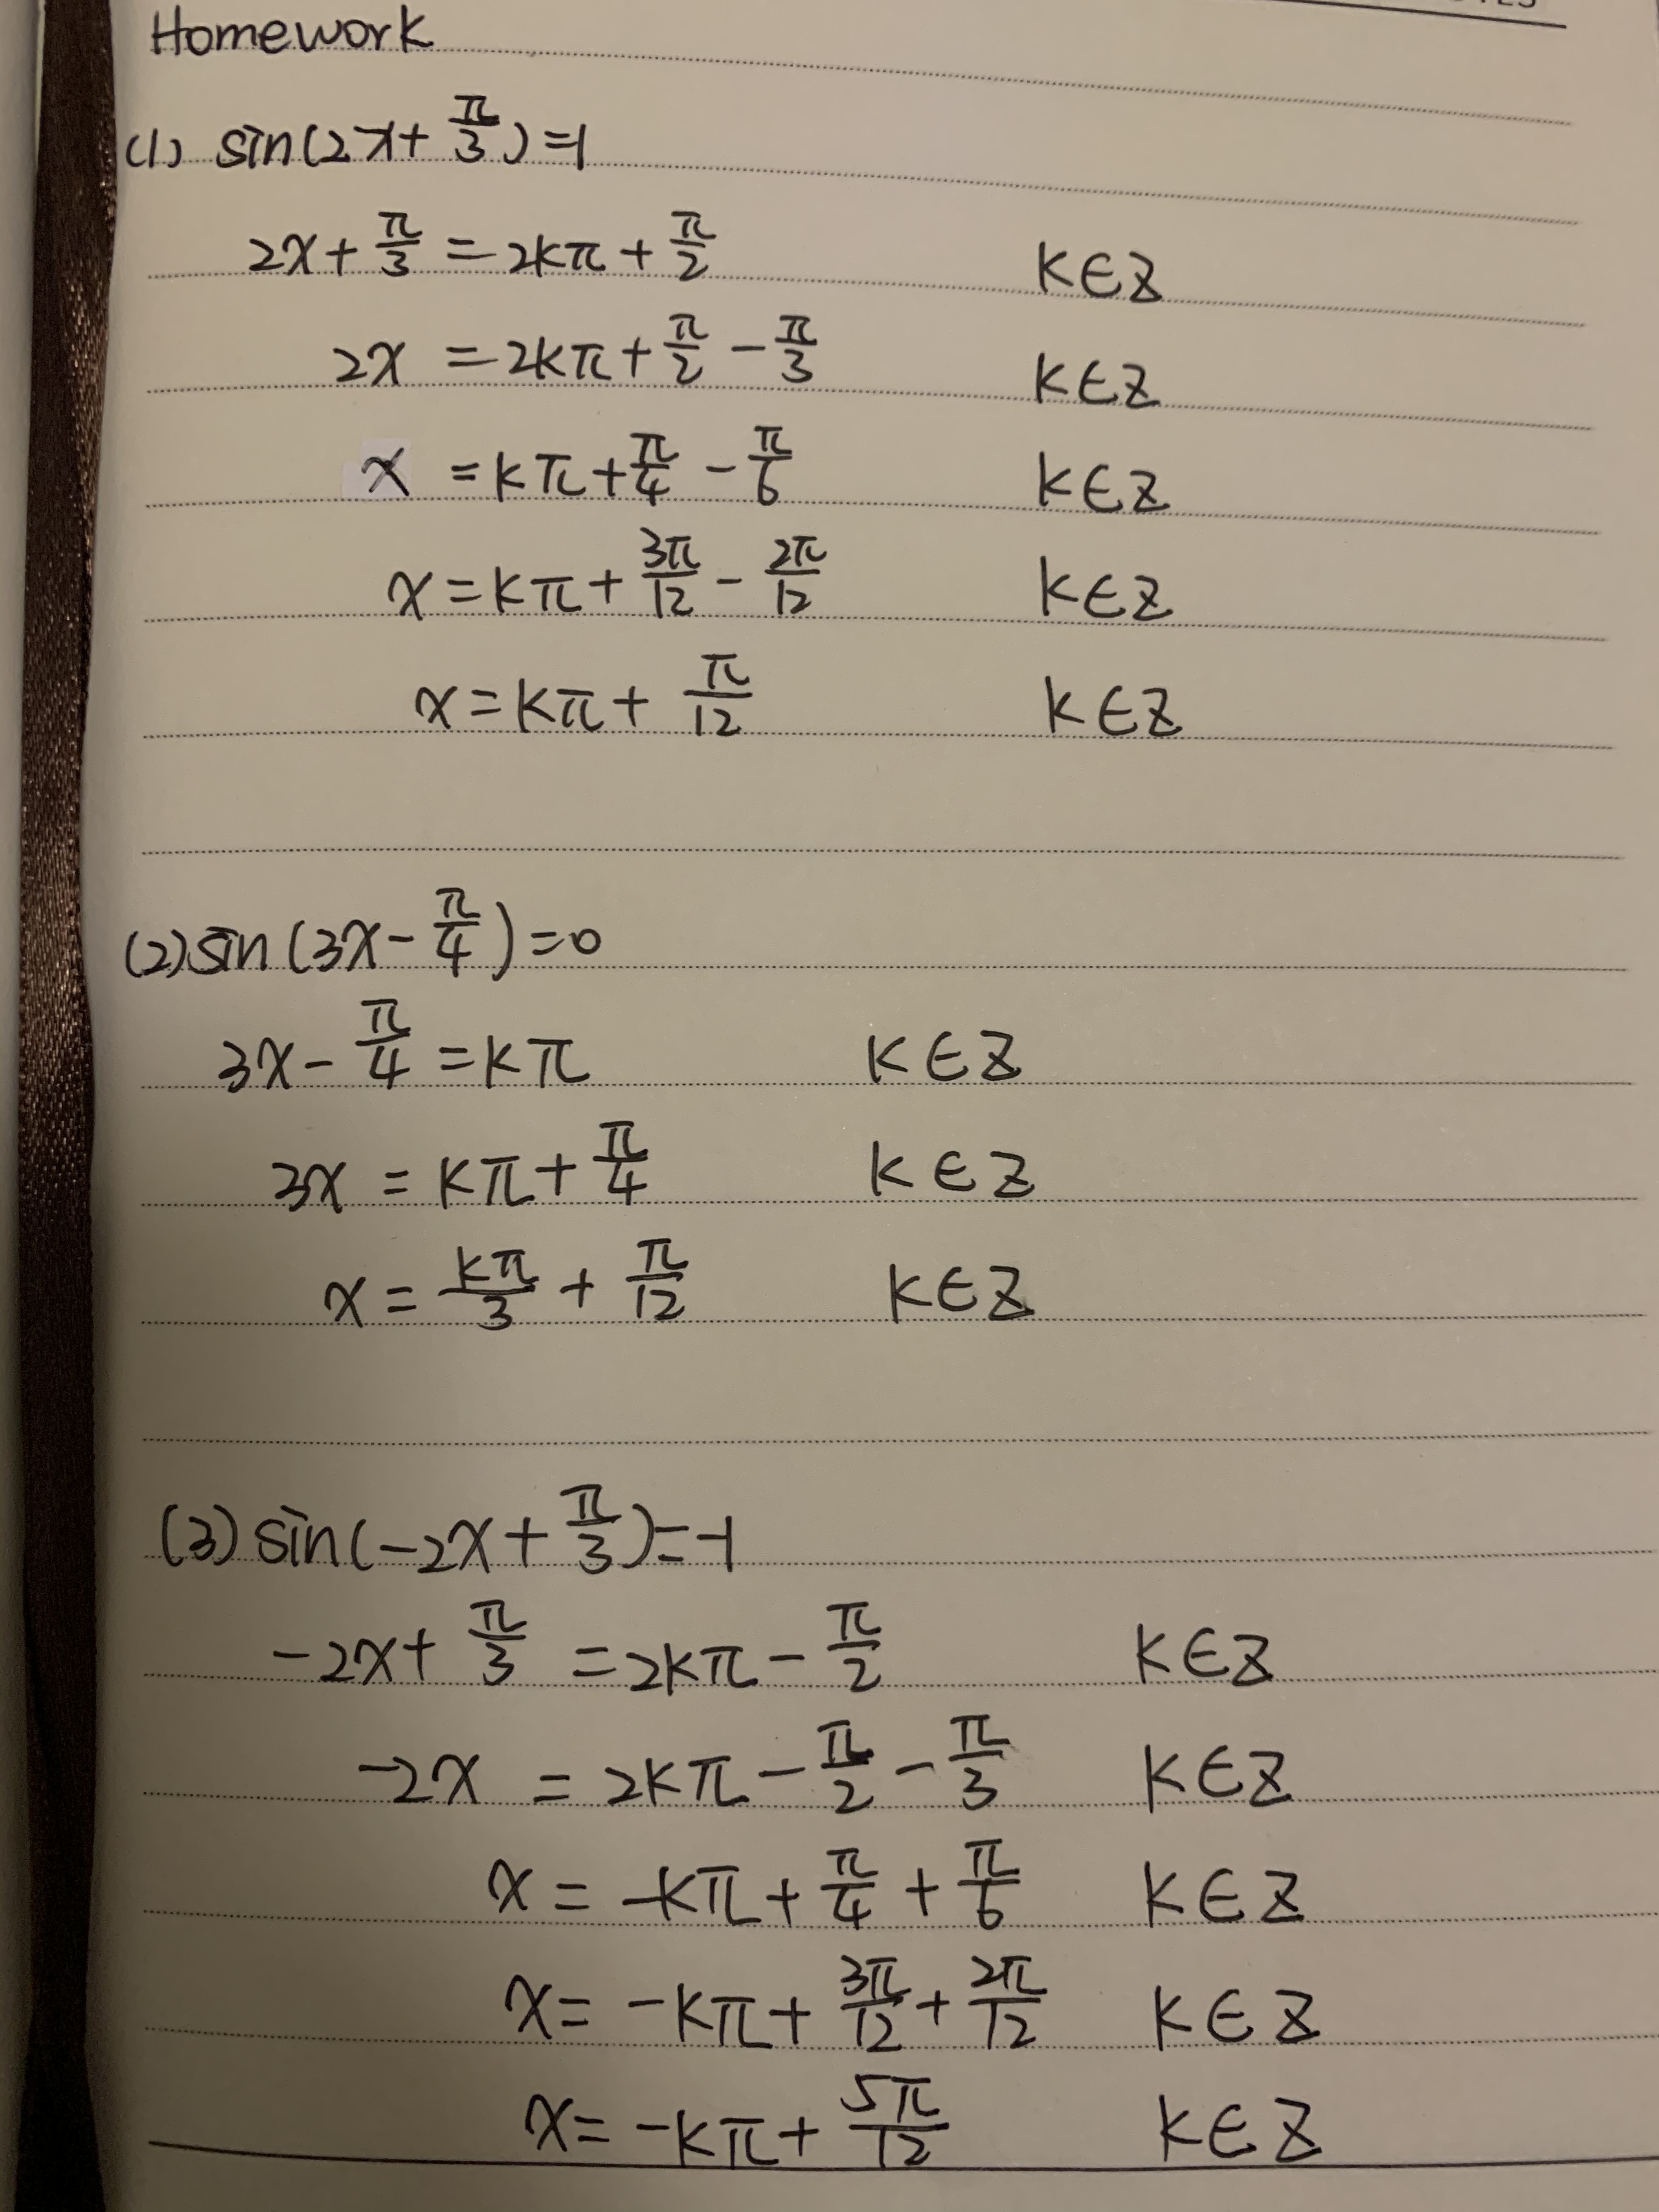 Homework
(1) sin(2x+π/3)=1
2x+π/3=2kπ+π/2 k∈Z
2x=2kπ+π/2-π/3 k∈Z
x=kπ+π/4-π/6 k∈Z
x=kπ+3π/12-2π/12 k∈Z
x=kπ+π/12 k∈Z
(2) sin(3x-π/4)=0
3x-π/4=kπ k∈Z
3x=kπ+π/4 k∈Z
x=kπ/3+π/12 k∈Z
(3) sin(-2x+π/3)=-1
-2x+π/3=2kπ-π/2 k∈Z
-2x=2kπ-π/2-π/3 k∈Z
x=-kπ+π/4+π/6 k∈Z
x=-kπ+3π/12+2π/12 k∈Z
x=-kπ+5π/12 k∈Z